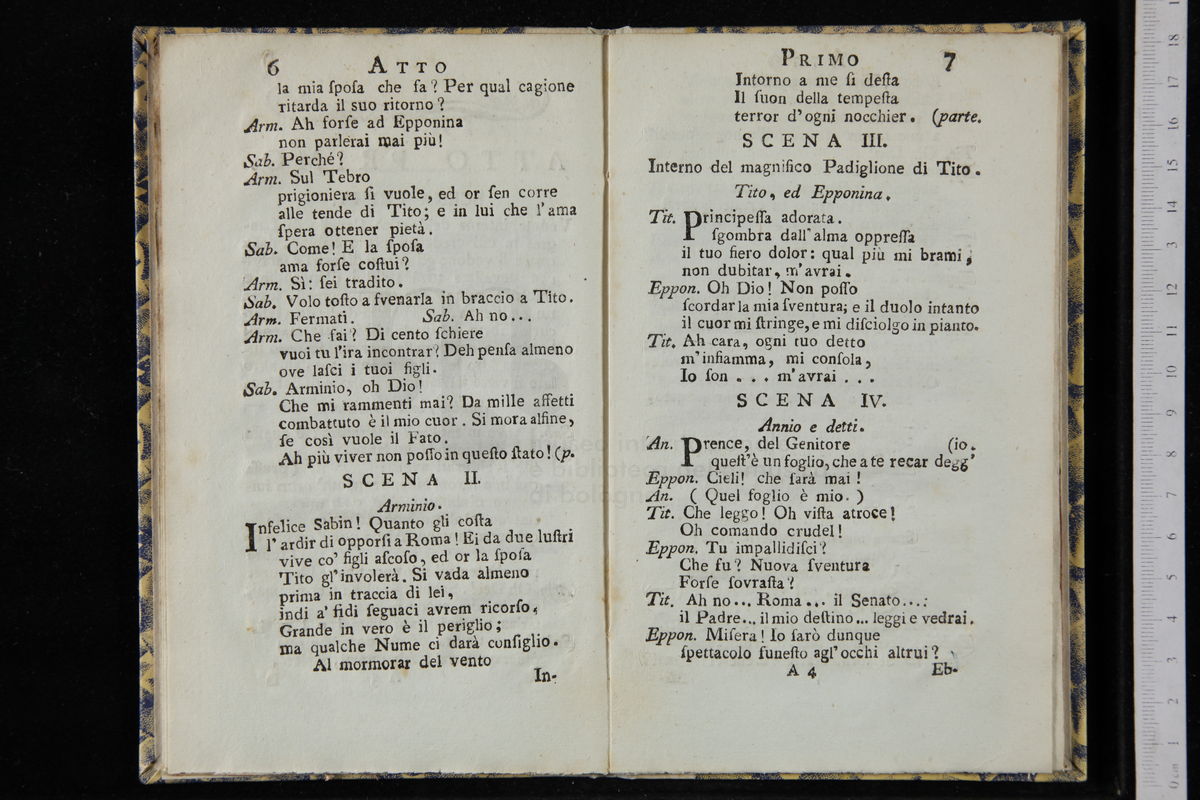 6 ATTO
la mia ſpoſa che fa? Per qual cagione
ritarda il suo ritorno?
Arm. Ah forſe ad Epponina
non parlerai mai più!
Sab. Perché?
Arm. Sul Tebro
prigioniera ſi vuole, ed or ſen corre
alle tende di Tito; e in lui che l'ama
ſpera ottener pietà.
Sab. Come! E la ſpoſa
ama forſe coſtui?
Arm. Sì: ſei tradito.
Sab. Volo toſto a ſvenarla in braccio a Tito.
Arm. Fermati. Sab. Ah no...
Arm. Che fai? Di cento ſchiere
vuoi tu l'ira incontrar? Deh penſa almeno
ove laſci i tuoi figli.
Sab. Arminio, oh Dio!
Che mi rammenti mai? Da mille affetti
combattuto è il mio cuor. Si mora alfine,
ſe così vuole il Fato.
Ah più viver non poſſo in queſto ſtato! (p.
SCENA II.
Arminio.
Infelice Sabin! Quanto gli coſta
l'ardir di opporſi a Roma! Ei da due luſtri
vive co' figli aſcoſo, ed or la ſpoſa
Tito gl'involerà. Si vada almeno
prima in traccia di lei,
indi a' fidi ſeguaci avrem ricorſo.
Grande in vero è il periglio;
ma qualche Nume ci darà conſiglio.
Al mormorar del vento
In-
PRIMO 7
Intorno a me ſi deſta
Il ſuon della tempeſta
terror d'ogni nocchier. (parte.
SCENA III.
Interno del magnifico Padiglione di Tito.
Tito, ed Epponina.
Tit. Principeſſa adorata.
ſgombra dall'alma oppreſſa
il tuo fiero dolor: qual più mi brami,
non dubitar, m'avrai.
Eppon. Oh Dio! Non poſſo
ſcordar la mia ſventura; e il duolo intanto
il cuor mi ſtringe, e mi diſciolgo in pianto.
Tit. Ah cara, ogni tuo detto
m'infiamma, mi conſola,
Io ſon... m'avrai...
SCENA IV.
Annio e detti.
An. Prence, del Genitore (io.
queſt'è un foglio, che a te recar degg'
Eppon. Cieli! che ſarà mai!
An. (Quel foglio è mio.)
Tit. Che leggo! Oh viſta atroce!
Oh comando crudel!
Eppon. Tu impallidiſci?
Che fu? Nuova ſventura
Forſe ſovraſta?
Tit. Ah no... Roma... il Senato...:
il Padre... il mio deſtino... leggi e vedrai.
Eppon. Miſera! Io ſarò dunque
ſpettacolo funeſto agl'occhi altrui?
A 4 Eb-